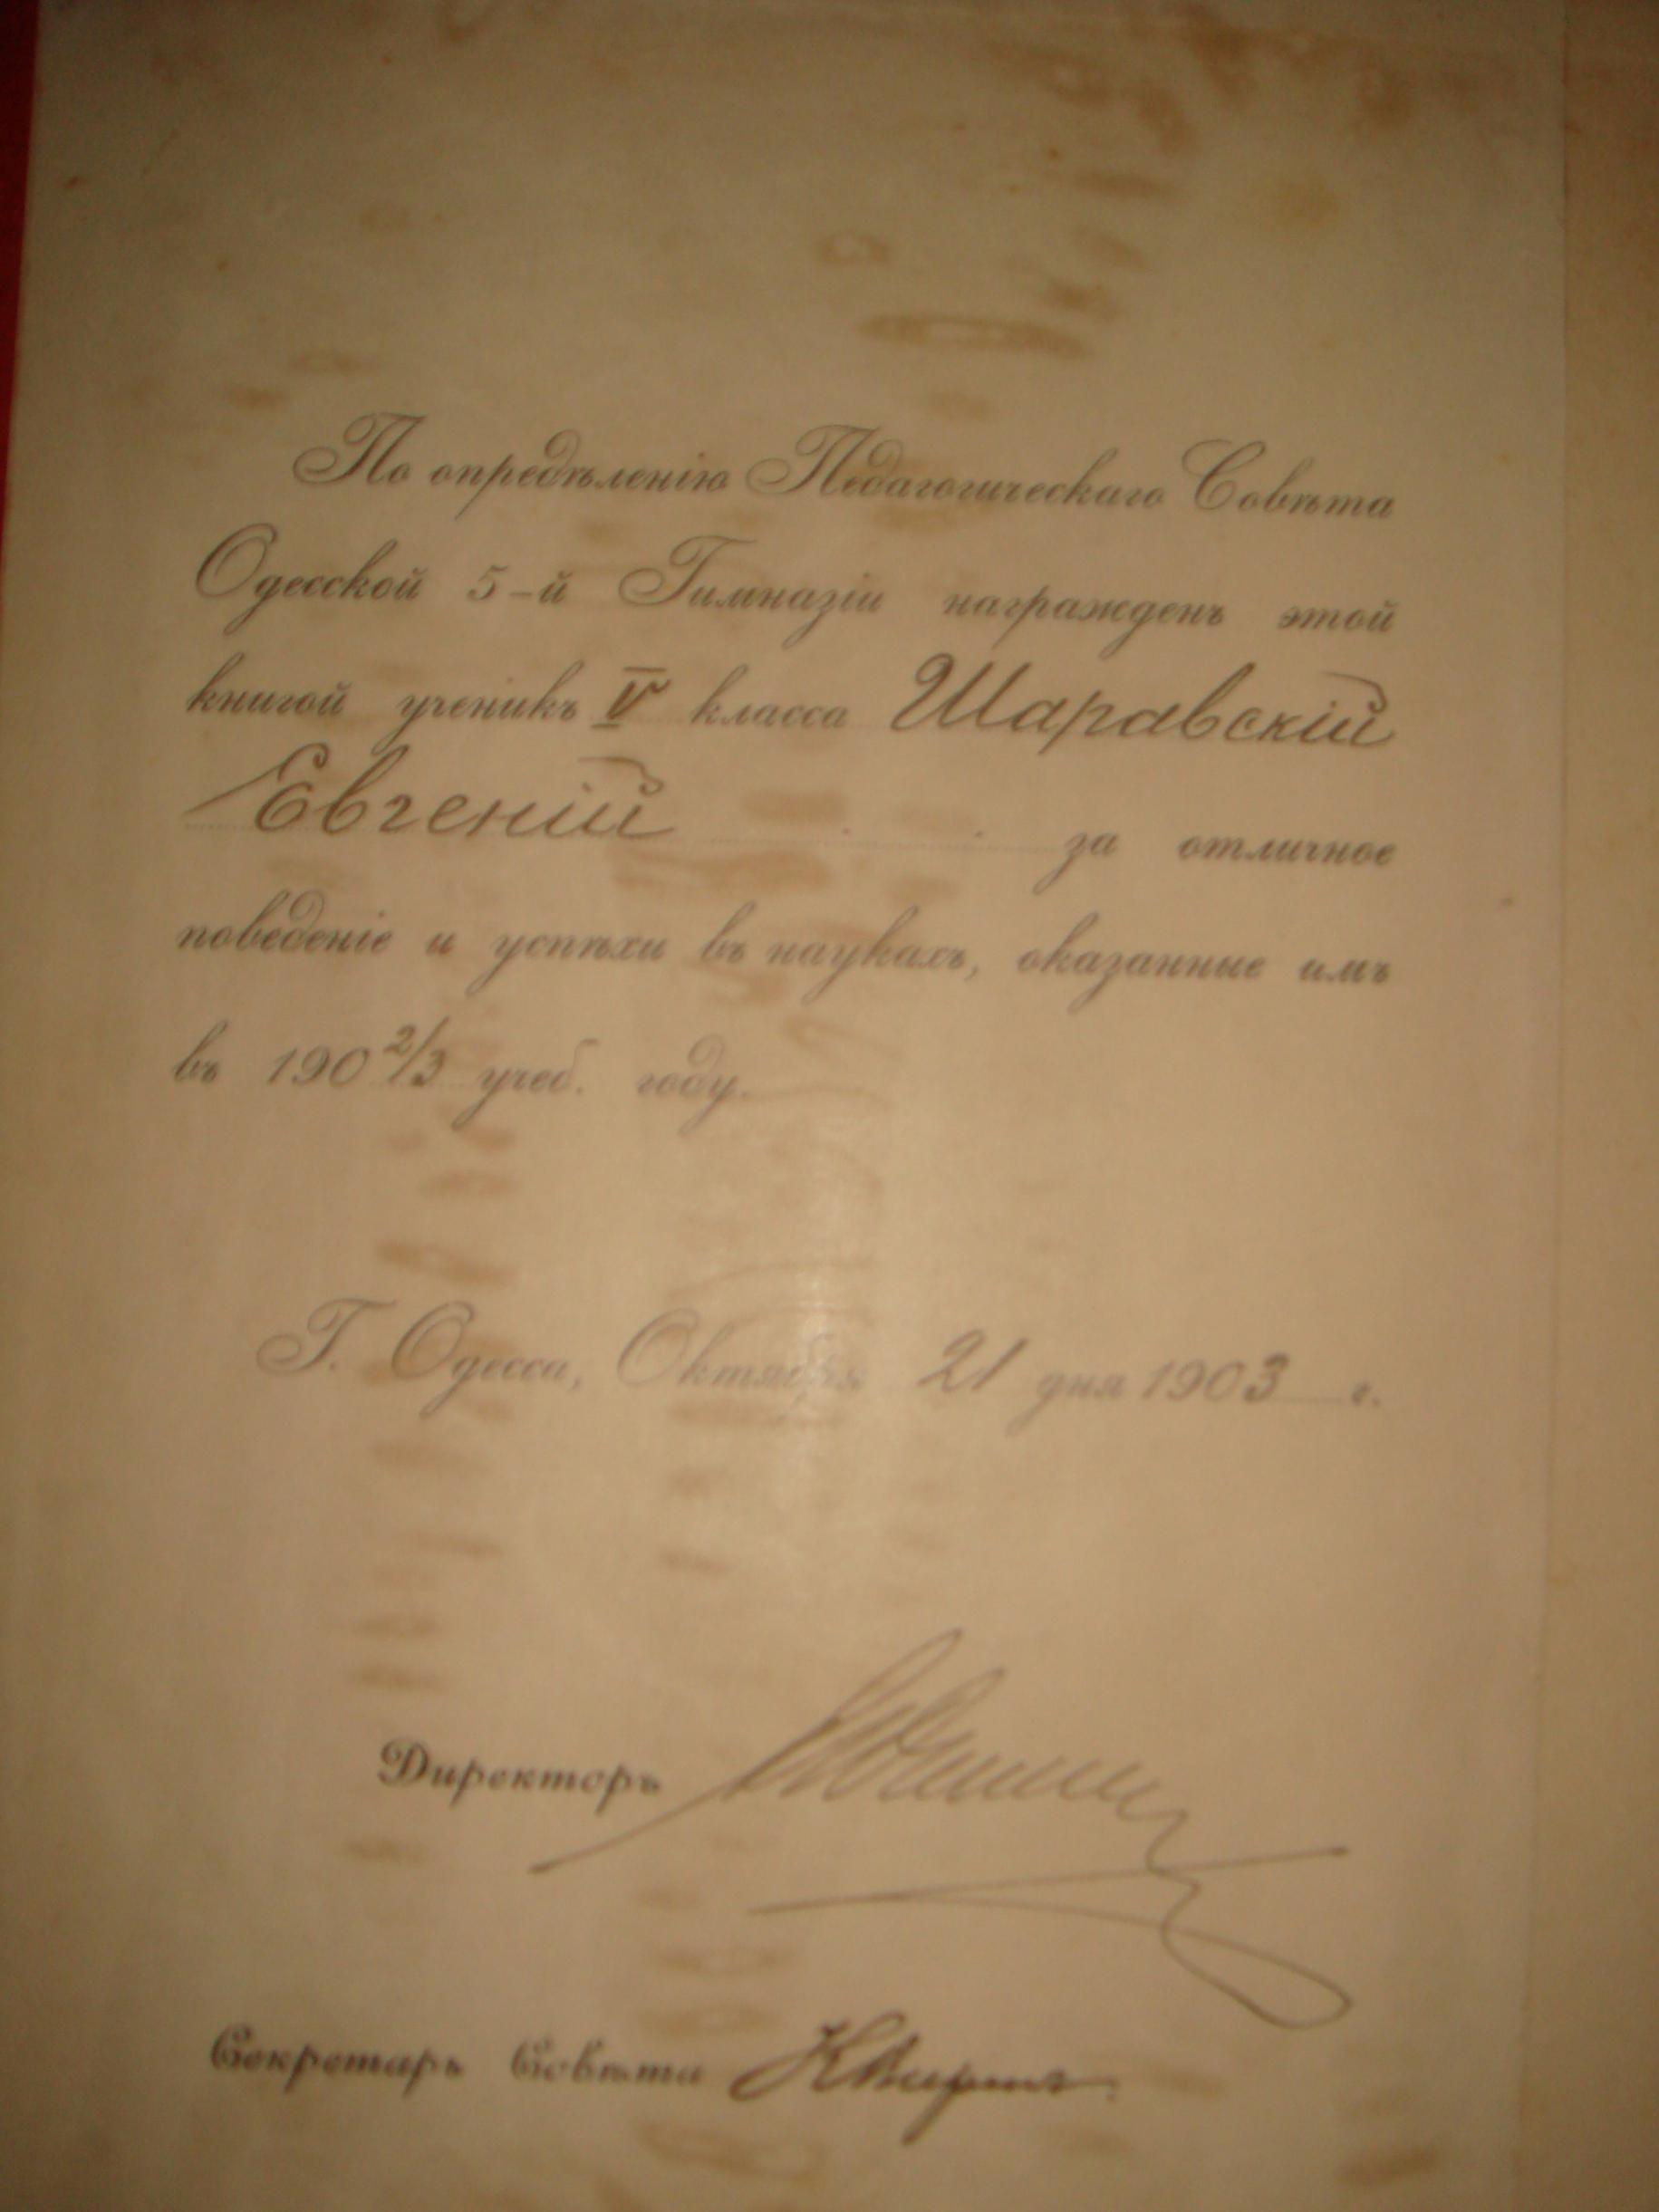 По опредѣленію Педагогическаго Совѣта
Одесской 5-й Гимназіи награжденъ этой
книгой ученикъ V класса Шаравскій
Евгеній за отличное
поведеніе и успѣхи въ наукахъ, оказанные имъ
въ 190 2/3 учеб. году.
Г. Одесса, Октября 21 дня 1903 г.
Директоръ
Секретарь Совѣта